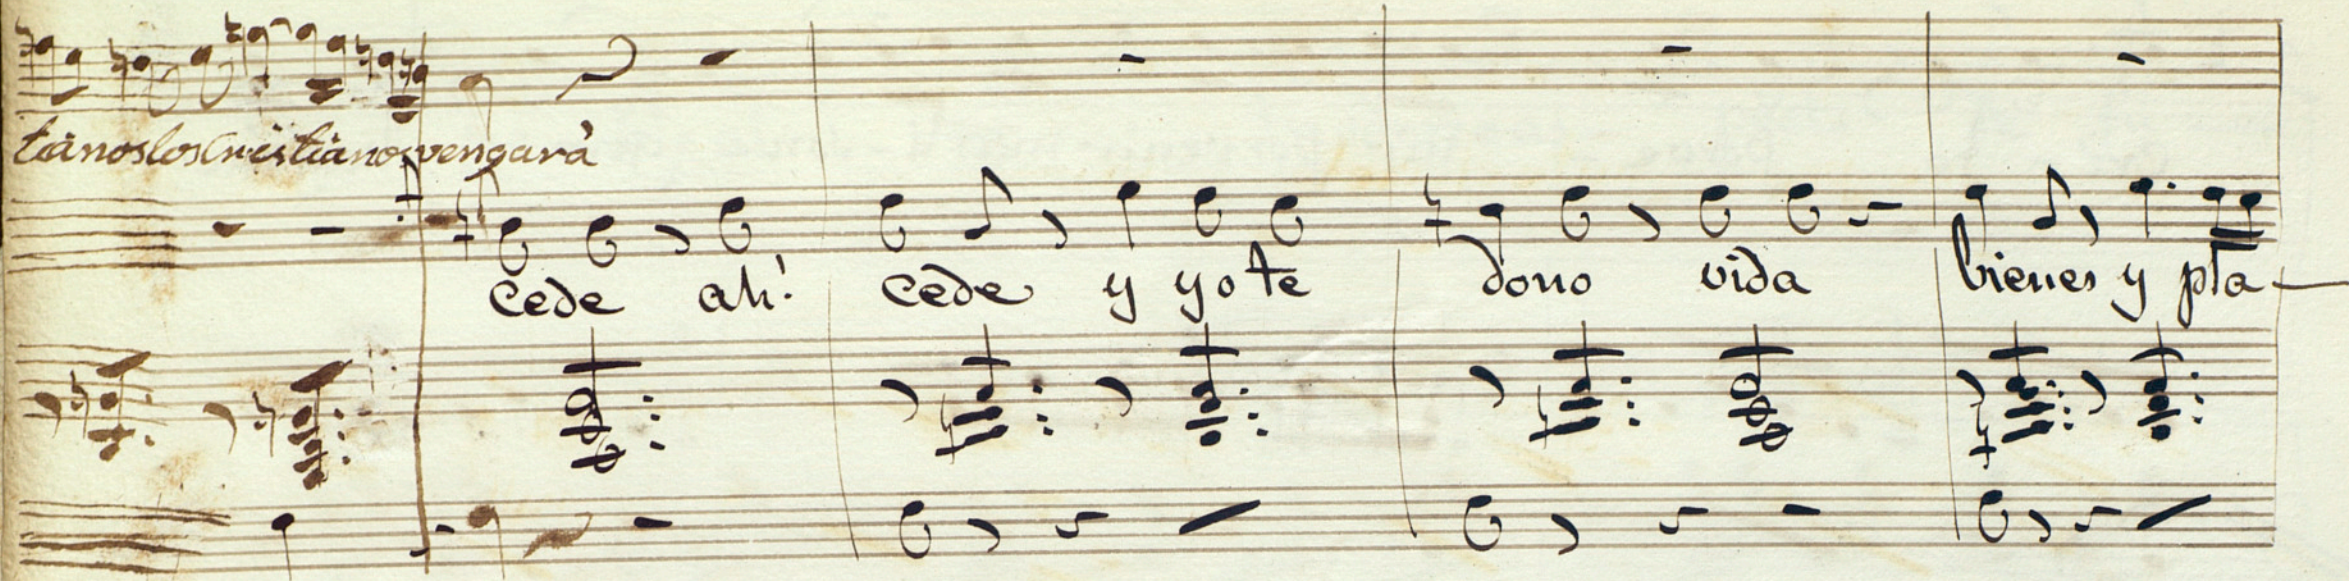 tianos los Cristianos vengarà
cede ah! cede y yo te dono vida bienes y pla-